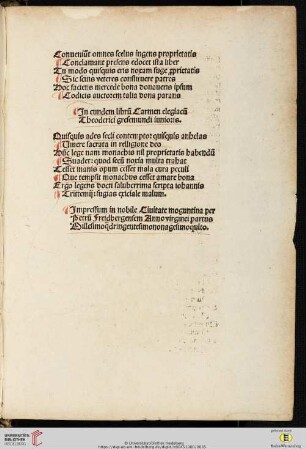 Conveniunt omnes scelus ingens proprietatis
Conclamant presens edocet ista liber
Tu modo quisquis eris noxam fuge pprietatis
Sic seras veteres consuluere patres
Hoc faciens mercede bona donaveris ipsum
Codicis auctorem talia dona parans
In eundem librū Carmen elegiacū
Theoderici gresemundi iunioris.
Quisquis ades secli contemptor quisquis anhelas
Vivere sacrata in religione deo
Huic lege nam monachis nil proprietatis habendū
Suadet: quod secū noxia multa trahat
Cesset inanis opum cesset mala cura peculi
Que tempsit monachus cesset amare bona
Ergo legens docti saluberrima scripta iohannis
Tritemij: fugias exiciale malum.
Impressum in nobile Civitate moguntina per
Petrū Fredbergensem Anno virginei partus
Millesimoq̄dringentesimononagesimoquito.
UNIVERSITÄTS-
BIBLIOTHEK
HEIDELBERG
© Universitätsbibliothek Heidelberg